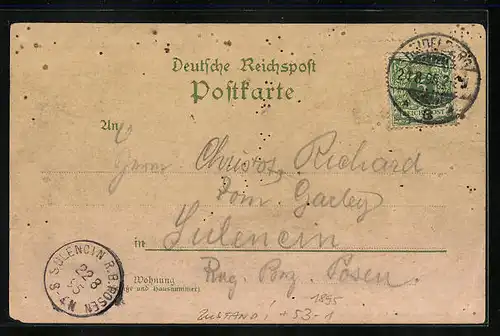 Deutsche Reichspost
Postkarte
HEIDELBERG
An
Herrn Christ. Richard
Dom.
in Sulencin
Posen
SULENCIN R.B. POSEN
22 8
95
Wohnung
(Straße und Hausnummer)
1895
ZUSTAND! + 53-1